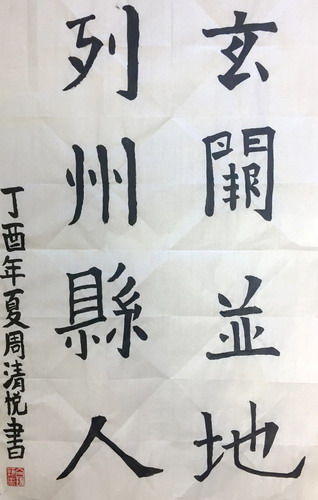 玄闕並地
列州縣人
丁酉年夏周清悦書